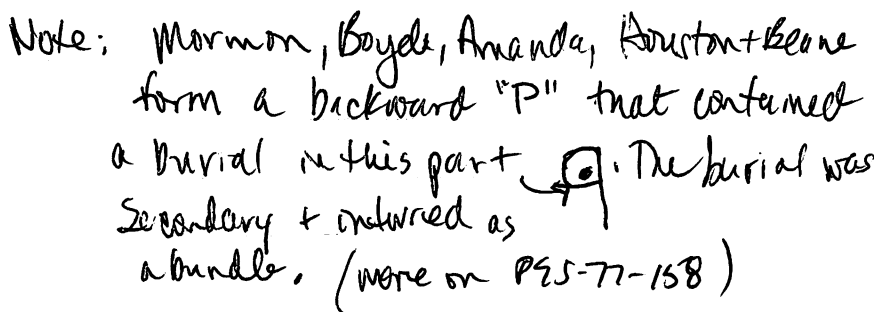 Note: Mormon, Boyde, Amanda, Houston + Beane
form a backward "P" that contained
a burial in this part. The burial was
Secondary + interred as
a bundle. (more on P95-77-158)